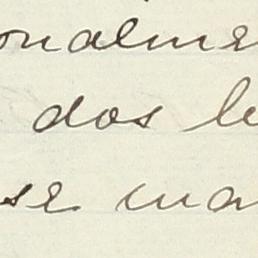 onalme
dos le
se ma